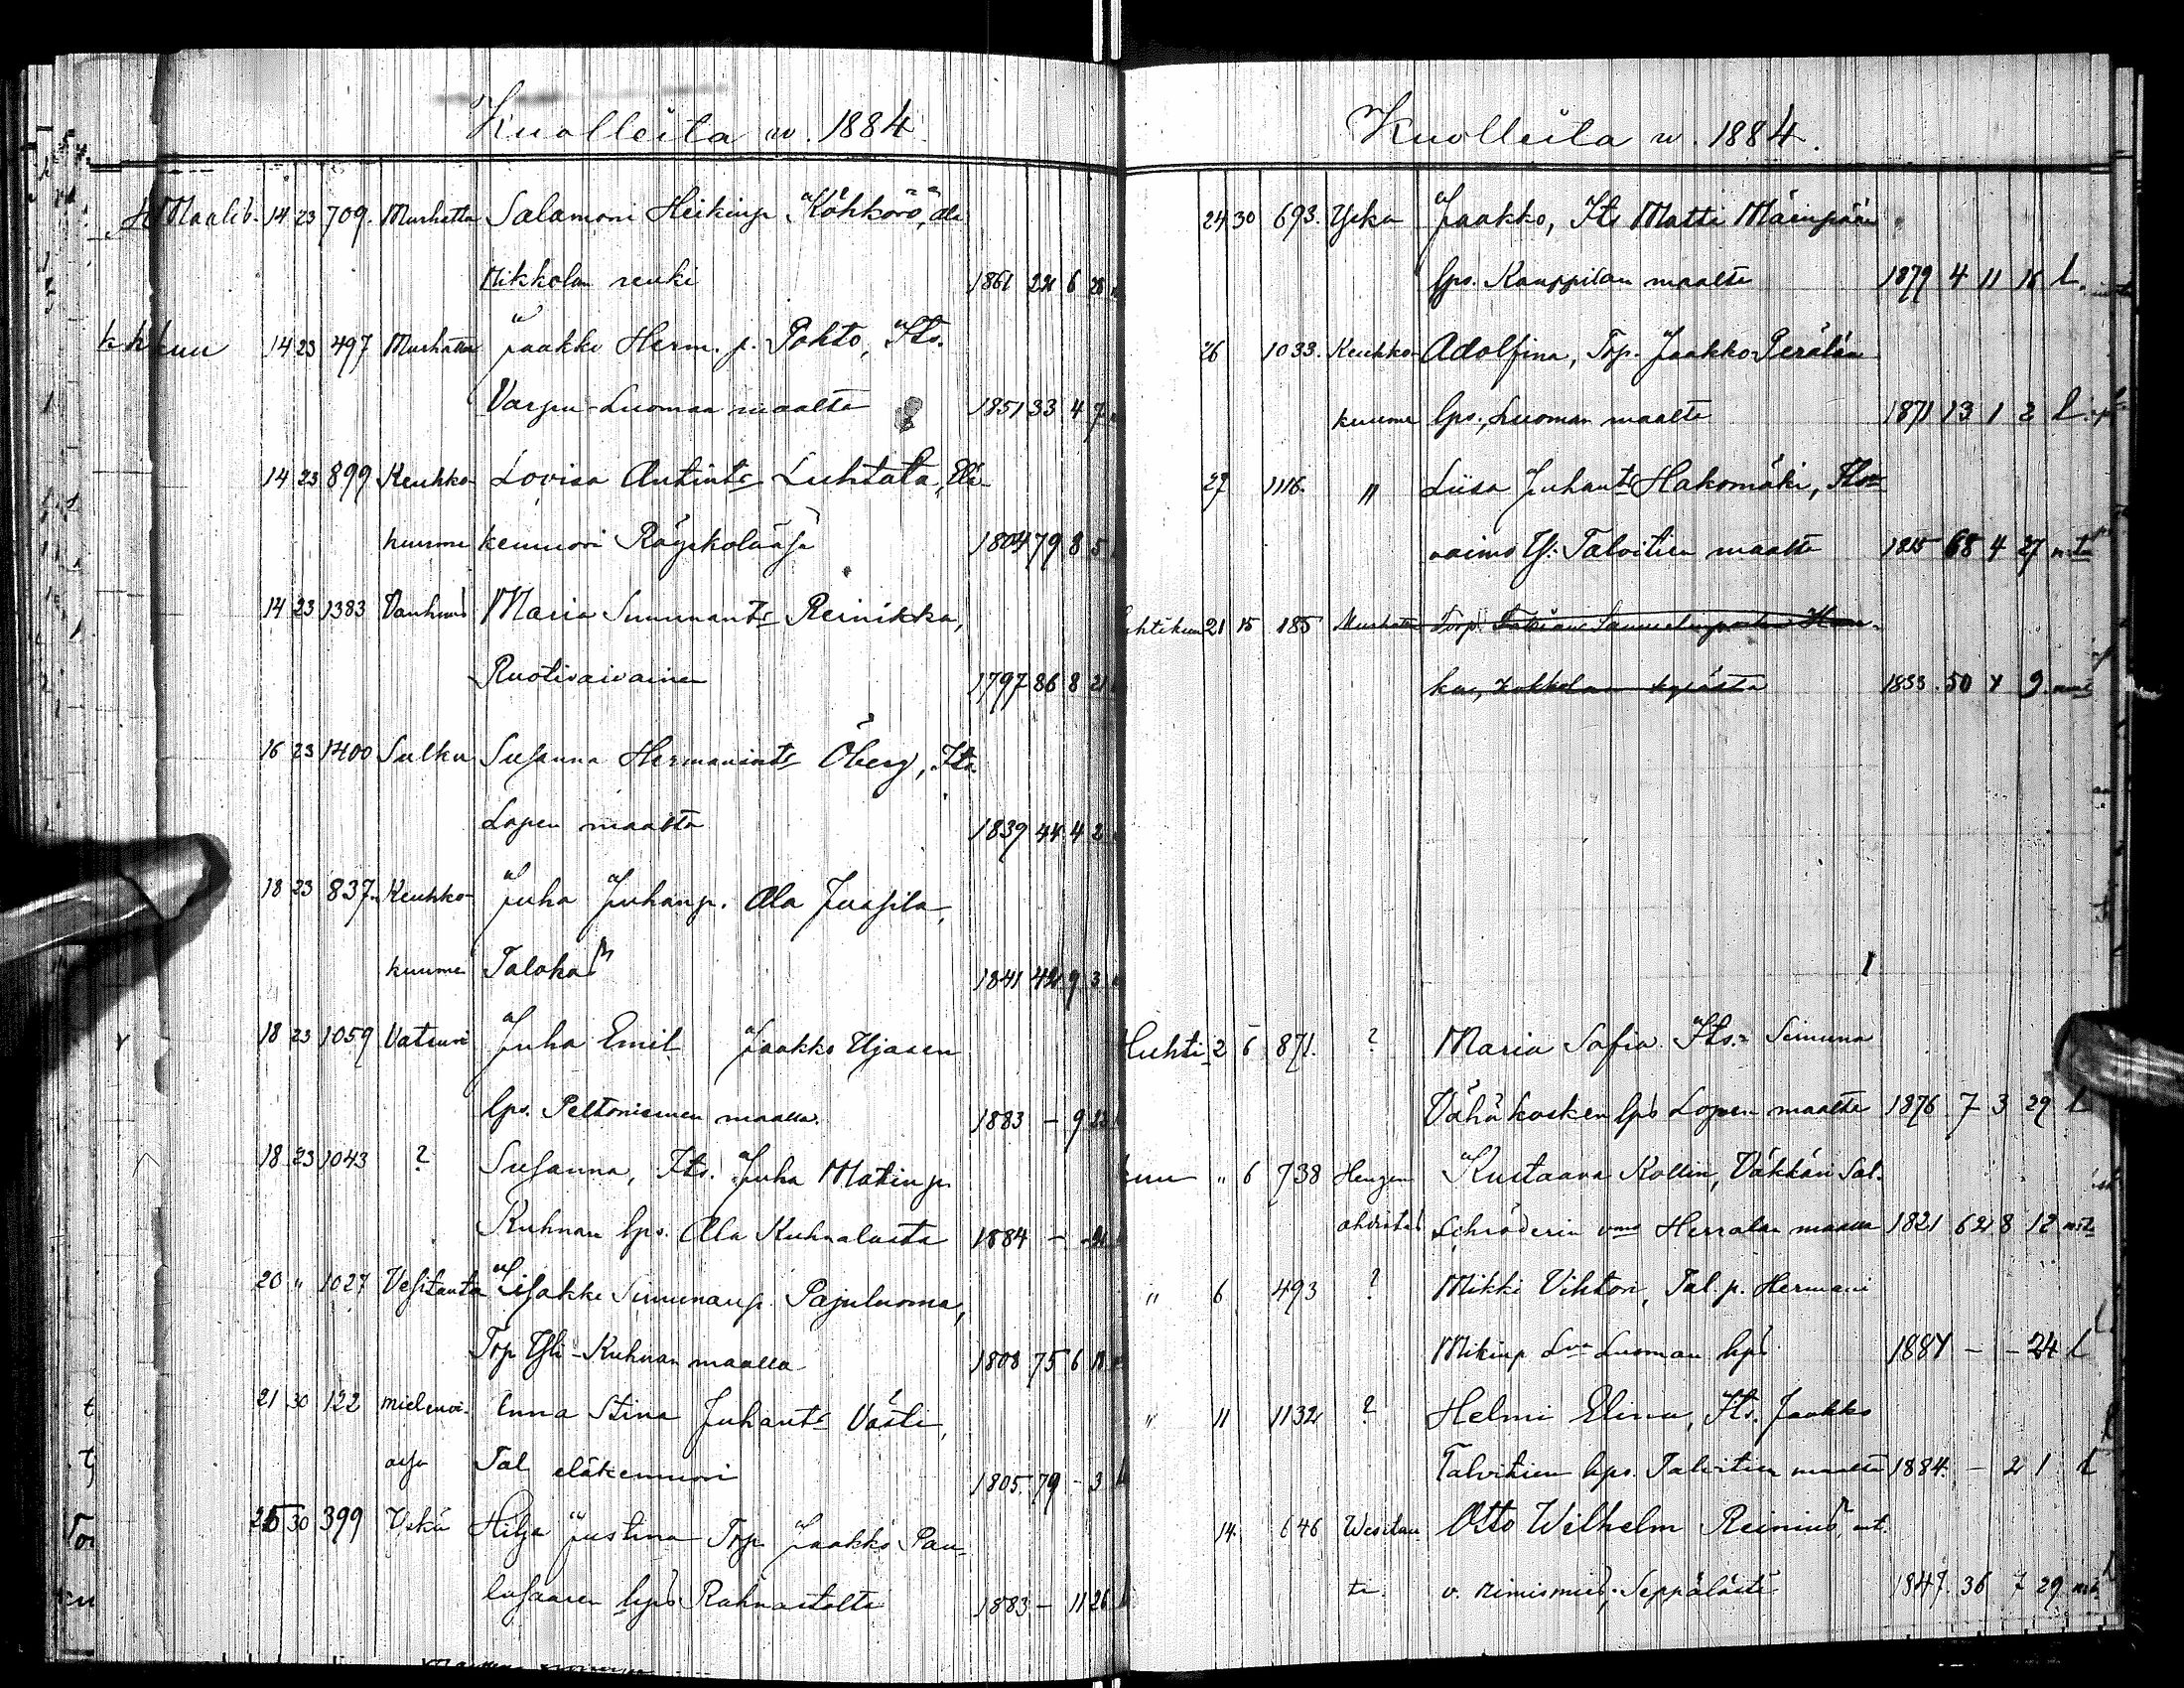 Kuolleita w. 1884
Maalisk. 14 23 709. Murhattu Salamoni Heikinp. Köhkörö, Ala
Mikkolan renki 1861 22 6 28
kuu 14 23 497 Murhattu Jaakko Herm. p. Pohto, Its.
Varpu-Luoman maalta 1851 33 4 7
14 23 899 Keuhko- Lovisa Antint:r Luhtala, Elä-
kuume kemuori Räyskolassa 1804 79 8 5
14 23 1383 Vanhuus Maria Simunant:r Reinikka,
Ruotivaivainen 1797 86 8 21
16 23 1400 Sulku Susanna Hermanint:r Öberg, Its.
Lopen maalta 1839 44 4 2
18 23 837. Keuhko- Juha Juhanp. Ala Juasila,
kuume Talokas 1841 42 9 3
18 23 1059 Vatsuri Juha Emil Jaakko Ujasen
lps. Peltoniemen maalla. 1883 - 9 23
18 23 1043 ? Susanna, Its. Juha Matinp.
Kuhnan lps. Ala Kuhnalasta 1884 - - 21
20 " 1027 Vesitauta Iisakki Simunanp. Pajuluoma,
Trp Yli-Kuhnan maalla 1808 75 6 18
21 30 122 mielenvi- Anna Stina Juhant:r Västi,
assa Tal. eläkemuori 1805. 79 - 3
25 30 399 Yskä Hilja Justina Trp. Jaakko Pau-
lasaaren lps Rahnastolta 1883 - 11 26
Kuolleita w. 1884.
24 30 693. Yskä Jaakko, Its Matti Mäenpään
lps. Kauppilan maalta 1879 4 11 16 l.
26 1033. Keuhko- Adolfina, Trp. Jaakko Perälän
kuume lps., Luoman maalta 1871 13 1 2 l.
27 1116. " Liisa Juhant:r Hakomäki, Its:n
vaimo Yli-Talvitien maalta 1815 68 4 27
21 15 185 Murhattu Torp. Fabian Samuelinpoika
kylästä 1833. 50 4 9.
Huhti- 2 6 871. ? Maria Sofia. Its:n Simuna
Vähäkosken lps Lopen maalta 1876 7 3 29 l
kuu " 6 738 Hengen Kustaava Kollin, Väkkäri Sal.
ahdistus Schröderin vmo Herralan maalla 1821 62 8 12
" 6 493 ? Mikki Vihtori, Tal. p. Hermani
Mikinp L:n Luoman lps 1884 - - 24 l
" 11 1132 ? Helmi Elina, Its. Jaakko
Talvitien lps. Talvitien maalta 1884. - 2 1 l
14. 646 Wesitau- Otto Wilhelm Reinius, ent.
ti. v. nimismies, Seppälästä 1847. 36 7 29